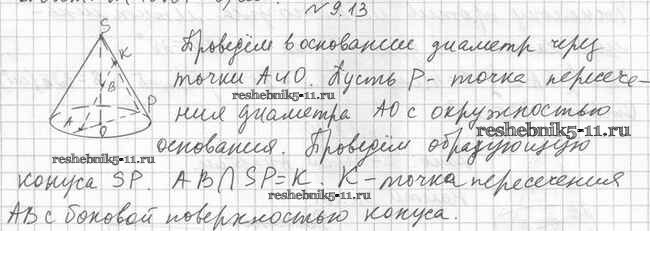 N 9.13
S
K
B
A
O
P
Проведём в основание диаметр через
точки А и О. Пусть Р - точка пересече-
reshebnik5-11.ru
ния диаметра АО с окружностью
reshebnik5-11.ru
основания. Проведём образующую
reshebnik5-11.ru
конуса SP. AB∩SP=K. К-точка пересечения
reshebnik5-11.ru
АВ с боковой поверхностью конуса.